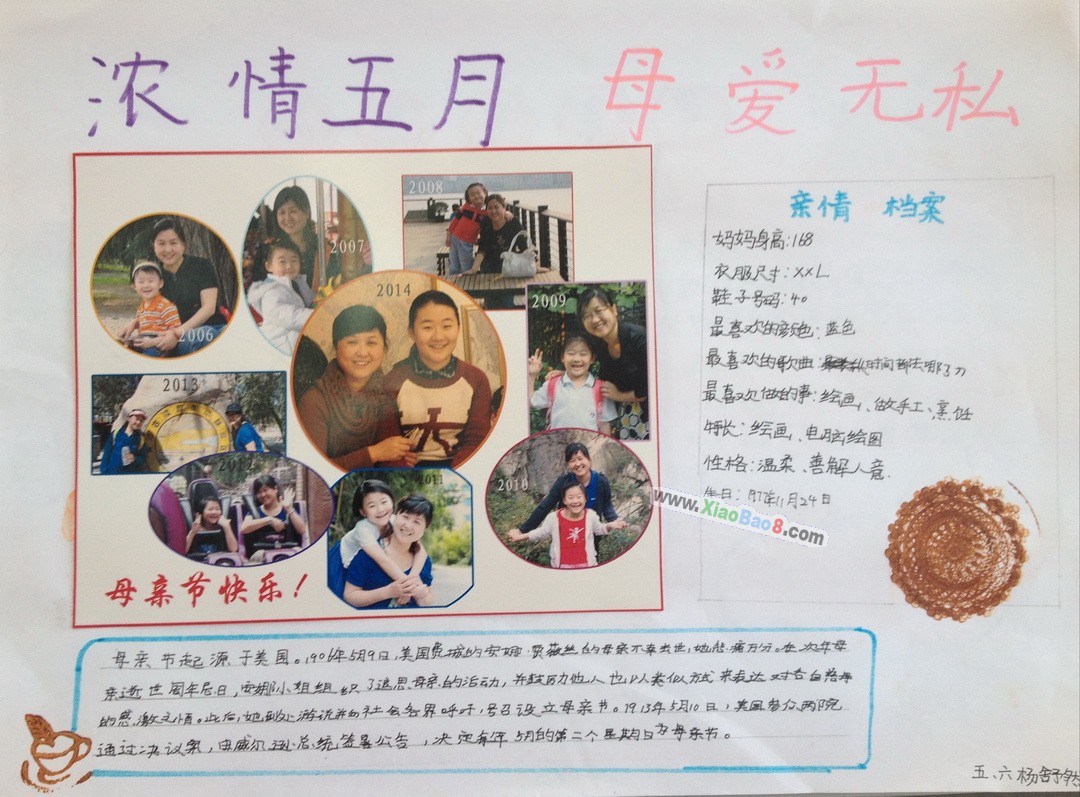 浓情五月 母爱无私
2006
2007
2008
2014
2009
2013
2012
2011
2010
母亲节快乐！
亲情 档案
妈妈身高：168
衣服尺寸：XXL
鞋子号码：40
最喜欢的颜色：蓝色
最喜欢的歌曲：时间都去哪了
最喜欢做的事：绘画、做手工、烹饪
特长：绘画、电脑绘图
性格：温柔、善解人意.
11月24日
www.XiaoBao8.com
母亲节起源于美国。1906年5月9日，美国费城的安娜·贾薇丝的母亲不幸去世，她悲痛万分。在次年母
亲逝世周年忌日，安娜小姐组织了追思母亲的活动，并鼓励他人也以类似方式来表达对各自慈母
的感激之情。此后，她到处游说并向社会各界呼吁，号召设立母亲节。1913年5月10日，美国参众两院
通过决议案，由威尔逊总统签署公告，决定每年5月的第二个星期日为母亲节。
五、六 杨舒